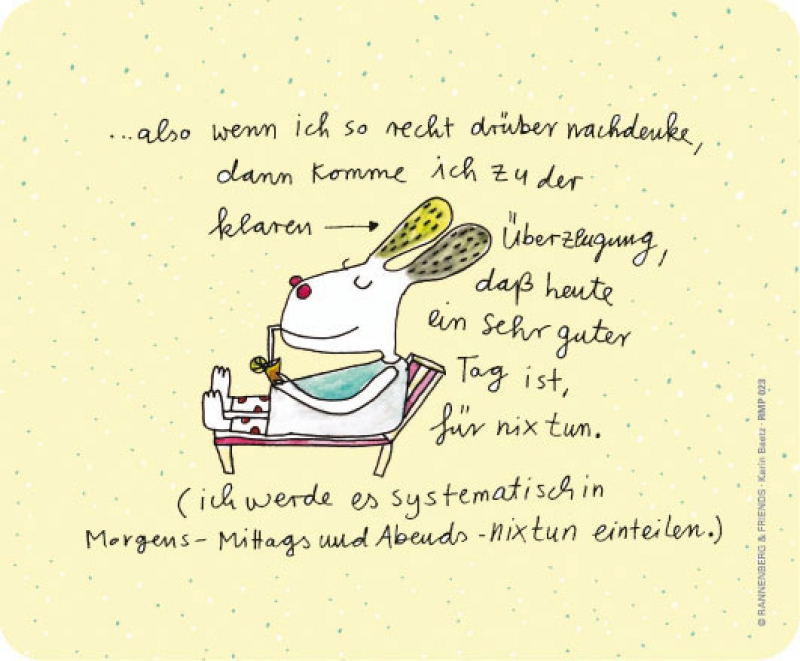 ...also wenn ich so recht drüber nachdenke,
dann komme ich zu der
klaren → Überzeugung,
daß heute
ein sehr guter
Tag ist,
für nix tun.
(ich werde es systematisch in
Morgens- Mittags und Abends -nixtun einteilen.)
© RANNENBERG & FRIENDS · Karin Baetz · RMP 023